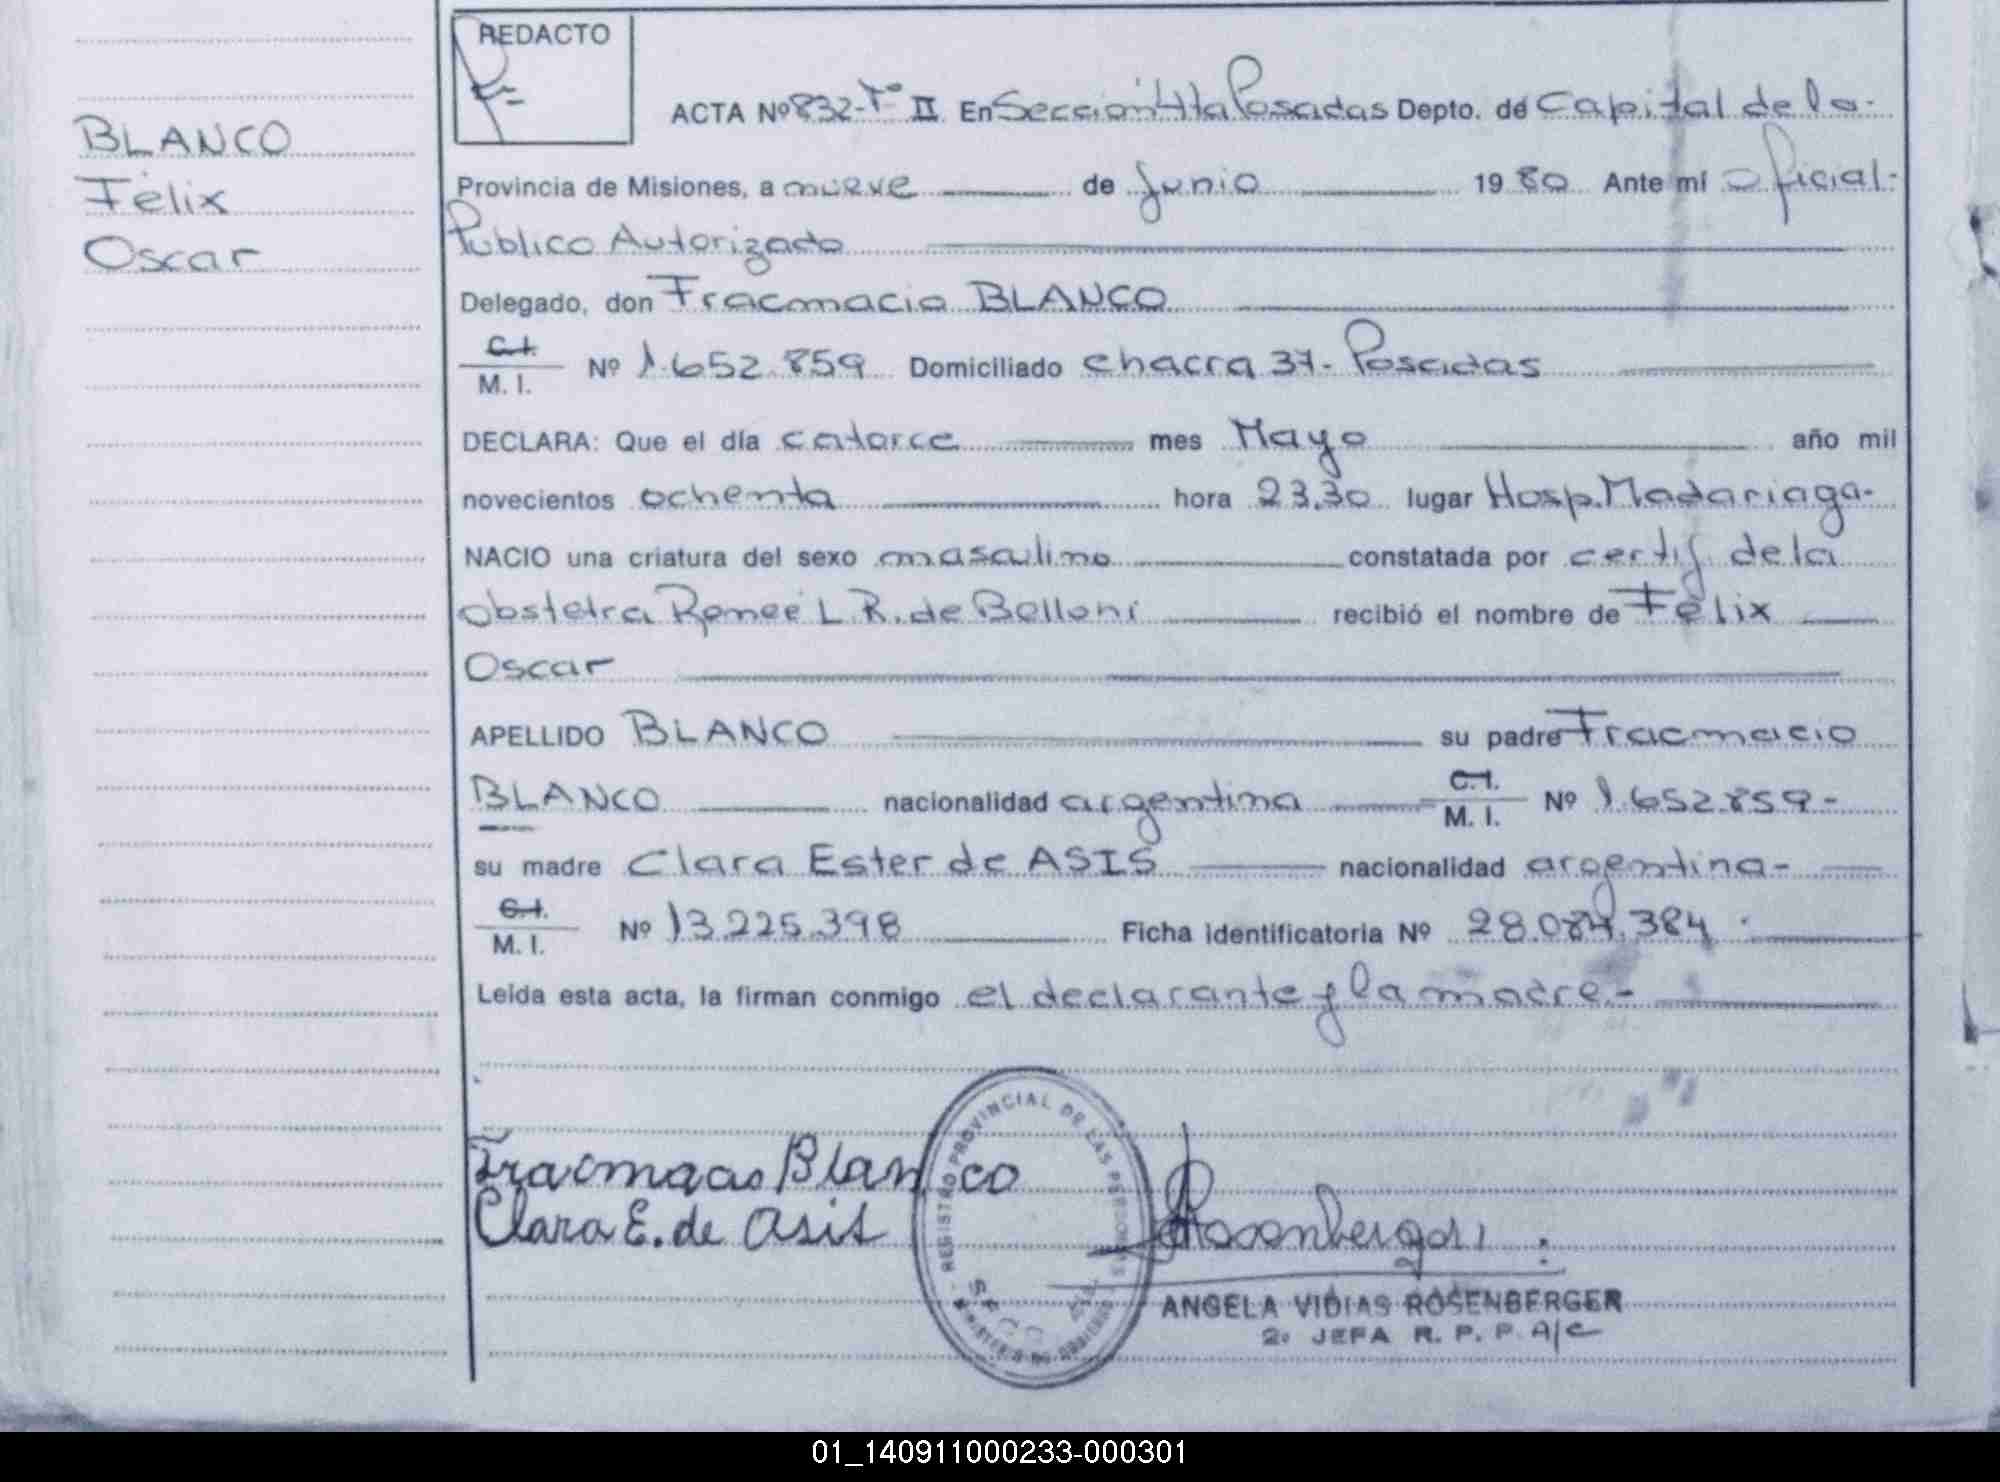 BLANCO
Félix
Oscar
REDACTO
ACTA Nº 832-Tº II En Sección 4ta Posadas Depto. de Capital de la-
Provincia de Misiones, a nueve de Junio 1980 Ante mí Oficial-
Público Autorizado
Delegado, don Tracmacio BLANCO
C.I.
M. I. Nº 1.652.859 Domiciliado chacra 37- Posadas
DECLARA: Que el día catorce mes Mayo año mil
novecientos ochenta hora 23,30 lugar Hosp. Madariaga-
NACIO una criatura del sexo masculino constatada por certif. de la
obstetra Reneé L.R. de Belloni recibió el nombre de Félix
Oscar
APELLIDO BLANCO su padre Tracmacio
BLANCO nacionalidad argentina C.I. M. I. Nº 1.652.859-
su madre Clara Ester de ASIS nacionalidad argentina-
C.I.
M. I. Nº 13.225.398 Ficha identificatoria Nº 28.084.384
Leída esta acta, la firman conmigo el declarante y la madre.-
Blanco
Clara E. de Asis
REGISTRO PROVINCIAL DE LAS PERSONAS
Rosenberger
ANGELA VIDIAS ROSENBERGER
2º JEFA R. P. P. A/c
01_140911000233-000301